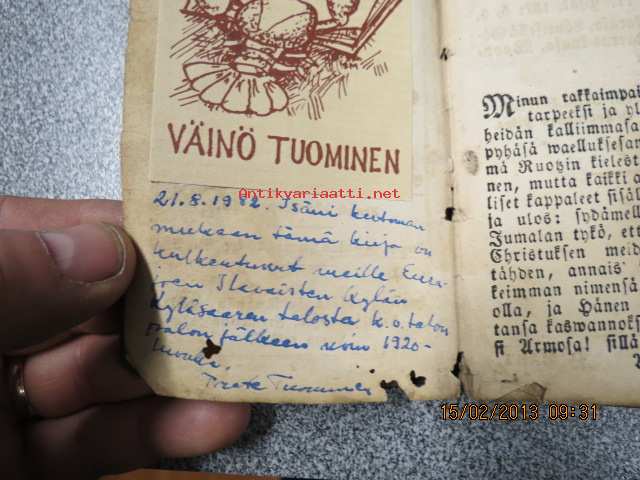 VÄINÖ TUOMINEN
Antikvariaatti.net
21.8.1982. Isäni kertoman
mukaan tämä kirja on
kulkeutunut meille Eura-
joen Ilavaisten kylän
Kyläsaaren talosta k.o. talon
palon jälkeen noin 1920-
luvulla.
Tuominen
Minun rakkaimpai
tarpeeksi ja yl
heidän kalliimmasa
pyhäsä waelluksesan
mä Ruotzin kielest
nen, mutta kaikki a
liset kappaleet sisäl
ja ulos: sydämel
Jumalan tykö, ett
Christuksen meid
tähden, annais
keimman nimensä
olla, ja Hänen
tansa kaswannoks
si Armosa! sillä
15/02/2013 09:31